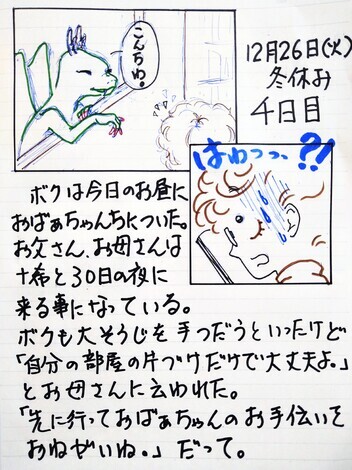 こんちわ。
12月26日(火)
冬休み
4日目
はわっっ、?!
ボクは今日のお昼に
おばぁちゃんちについた。
お父さん、お母さんは
十希と30日の夜に
来る事になっている。
ボクも大そうじを手つだうといったけど
「自分の部屋の片づけだけで大丈夫よ。」
とお母さんに云われた。
「先に行っておばぁちゃんのお手伝いを
おねがいね。」だって。